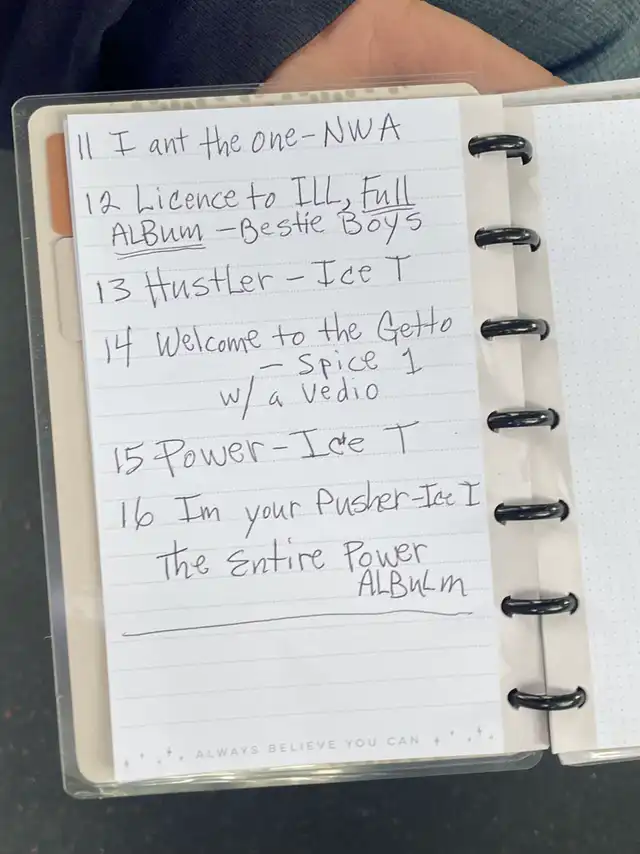 11 I ant the one - NWA
12 Licence to ILL, Full
ALBum - Bestie Boys
13 Hustler - Ice T
14 Welcome to the Getto
- Spice 1
w/a Vedio
15 Power - Ice T
16 Im your Pusher - Ice T
The Entire Power
ALBuLm
ALWAYS BELIEVE YOU CAN